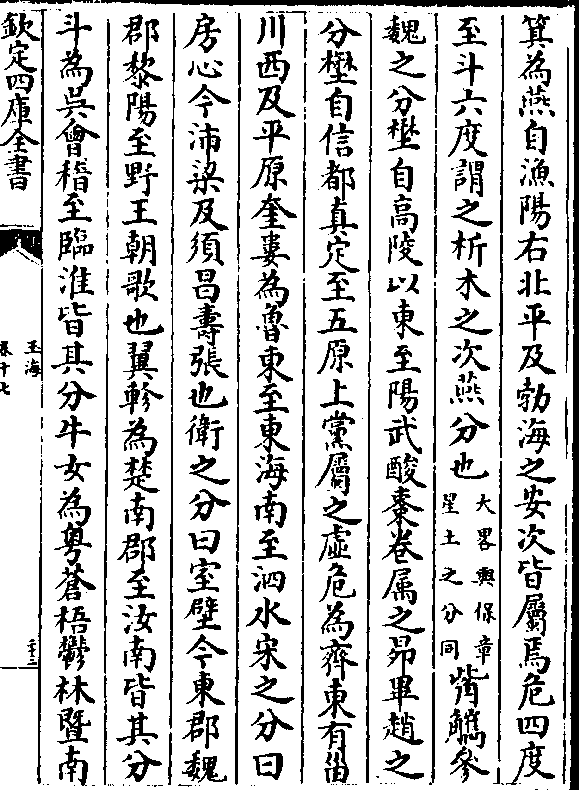 箕為燕自漁陽右北平及勃海之安次皆屬焉危四度
至斗六度謂之析木之次燕分也大畧與保章星土之分同觜觿參
魏之分壄自高陵以東至陽武酸棗卷属之昴畢趙之
分壄自信都真定至五原上黨屬之虛危為齊東有甾
川西及平原奎婁為魯東至東海南至泗水宋之分曰
房心今沛梁及須昌壽張也衛之分曰室壁今東郡魏
郡黎陽至野王朝歌也翼軫為楚南郡至汝南皆其分
斗為吳會稽至臨淮皆其分牛女為粵蒼梧鬱林暨南
欽定四庫全書
玉海
卷十七
二十二